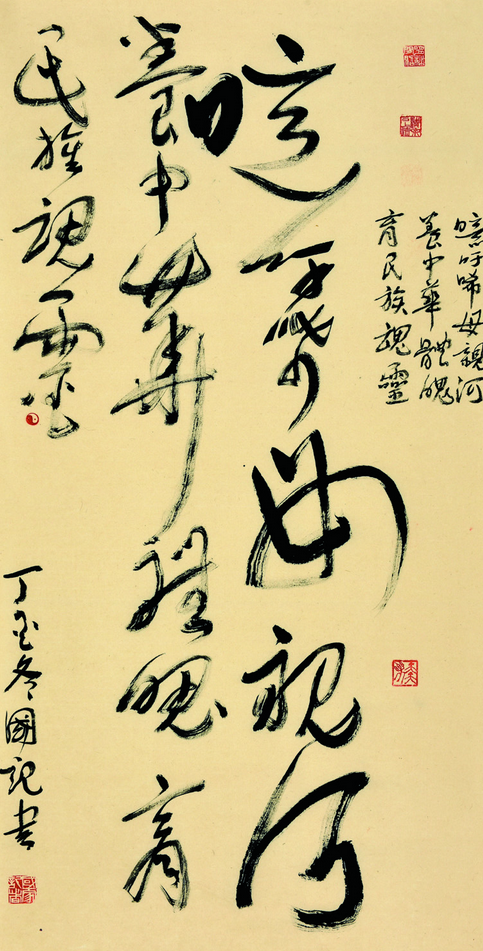 噫吁唏母親河
養中華體魄
育民族魂靈
噫吁唏母親河
養中華體魄育
民族魂靈
丁亥冬國記書